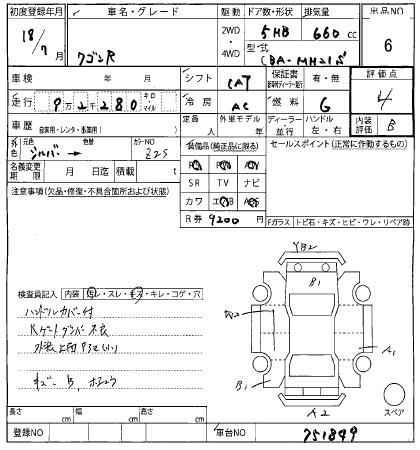 初度登録年月 車名・グレード 駆動 ドア数・形状 排気量 出品NO
18/7月 ワゴンR 2WD 5HB 660cc 6
4WD 型式 CBA-MH21S
車検 年 月 シフト CAT 保証書 有・無 評価点
走行 9万2千280 キロ・マイル 冷房 AC 燃料 G 4
車歴 自家用・レンタ・事業用( ) 定員 人 外車モデル 年 ディーラー・並行 ハンドル 左・右 内装評価 B
元色 シルバー → 色替 カラーNO Z2S 装備品(純正品に限る) セールスポイント(正常に作動するもの)
名義変更期限 月 日迄 積載 t
SR TV ナビ
注意事項(欠品・修復・不具合箇所および状態)
カワ
R券 9200円
Fガラス トビ石・キズ・ヒビ・ワレ・リペア跡
YB2
B1
検査員記入 内装 汚レ・スレ・キズ・キレ・コゲ・穴
ハンドルカバー付
W2
A1
キズ B
B1
A2
スペア
長さ cm 幅 cm 高さ cm
登録NO 車台NO 751849